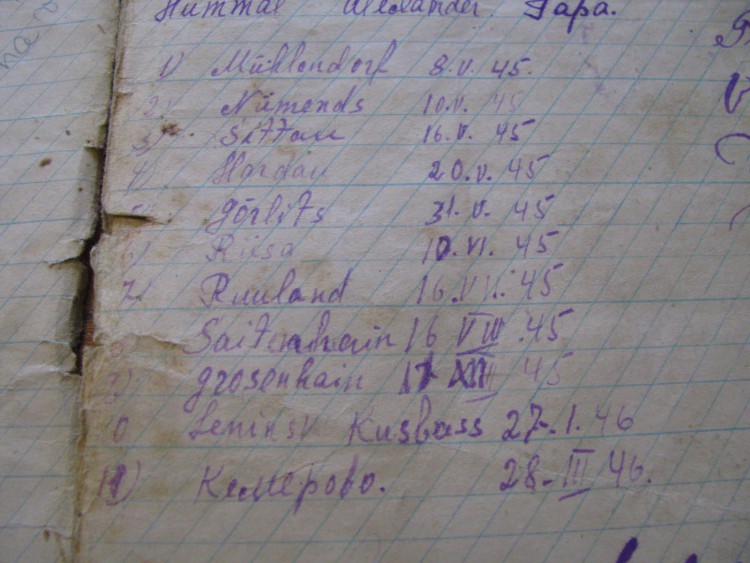 Hummal Alexander. Papa.
1) Mühlendorf 8.V.45.
2) Nümends 10.V.45
3) Sittau 16.V.45
4) Hardau 20.V.45
5) görlits 31.V.45
6) Riesa 10.VI.45
7) Ruuland 16.VII.45
8 Saitenhain 16 VIII.45
9) grosenhain 17 XII 45
10 Leninsk Kusbass 27.I.46
11) Кемерово. 28-III 46.